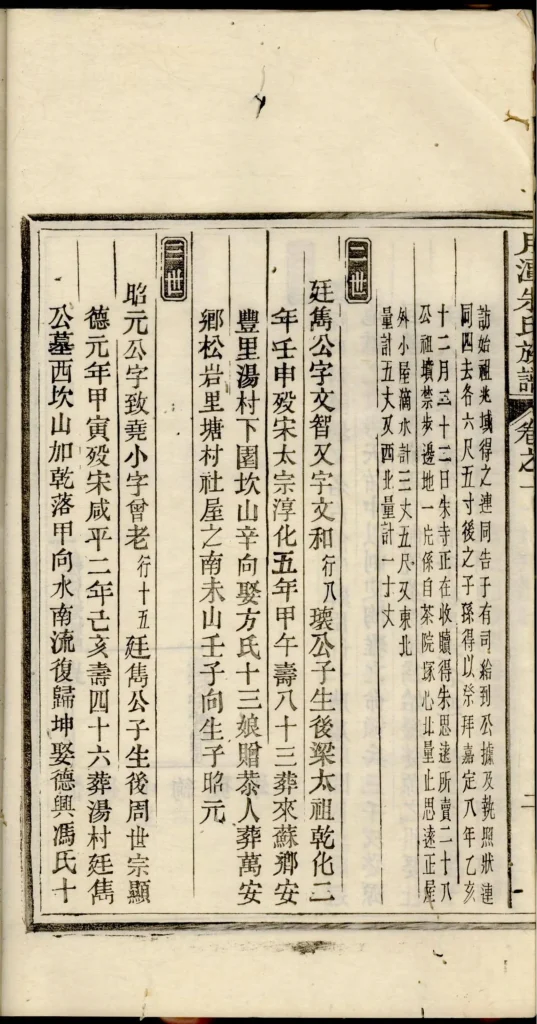 月潭朱氏族譜 卷之一
訪始祖兆域得之連同告于有司給到公據及執照狀連
同四去各六尺五寸後之子孫得以祭拜嘉定八年乙亥
十二月三十二日朱寺正在收贖得朱思遠所賣二十八
公祖墳禁步邊地一片係自茶院塚心北量止思遠正屋
外小屋滴水計三丈五尺又東北
量計五丈又西北量計一寸丈
二世
廷雋公字文智又字文和行八瓌公子生後梁太祖乾化二
年壬申歿宋太宗淳化五年甲午壽八十三葬來蘇鄉安
豐里湯村下園坎山辛向娶方氏十三娘贈恭人葬萬安
鄉松岩里塘村社屋之南未山壬子向生子昭元
三世
昭元公字致堯小字曾老行十五廷雋公子生後周世宗顯
德元年甲寅歿宋咸平二年己亥壽四十六葬湯村廷雋
公墓西坎山加乾落甲向水南流復歸坤娶德興馮氏十
二